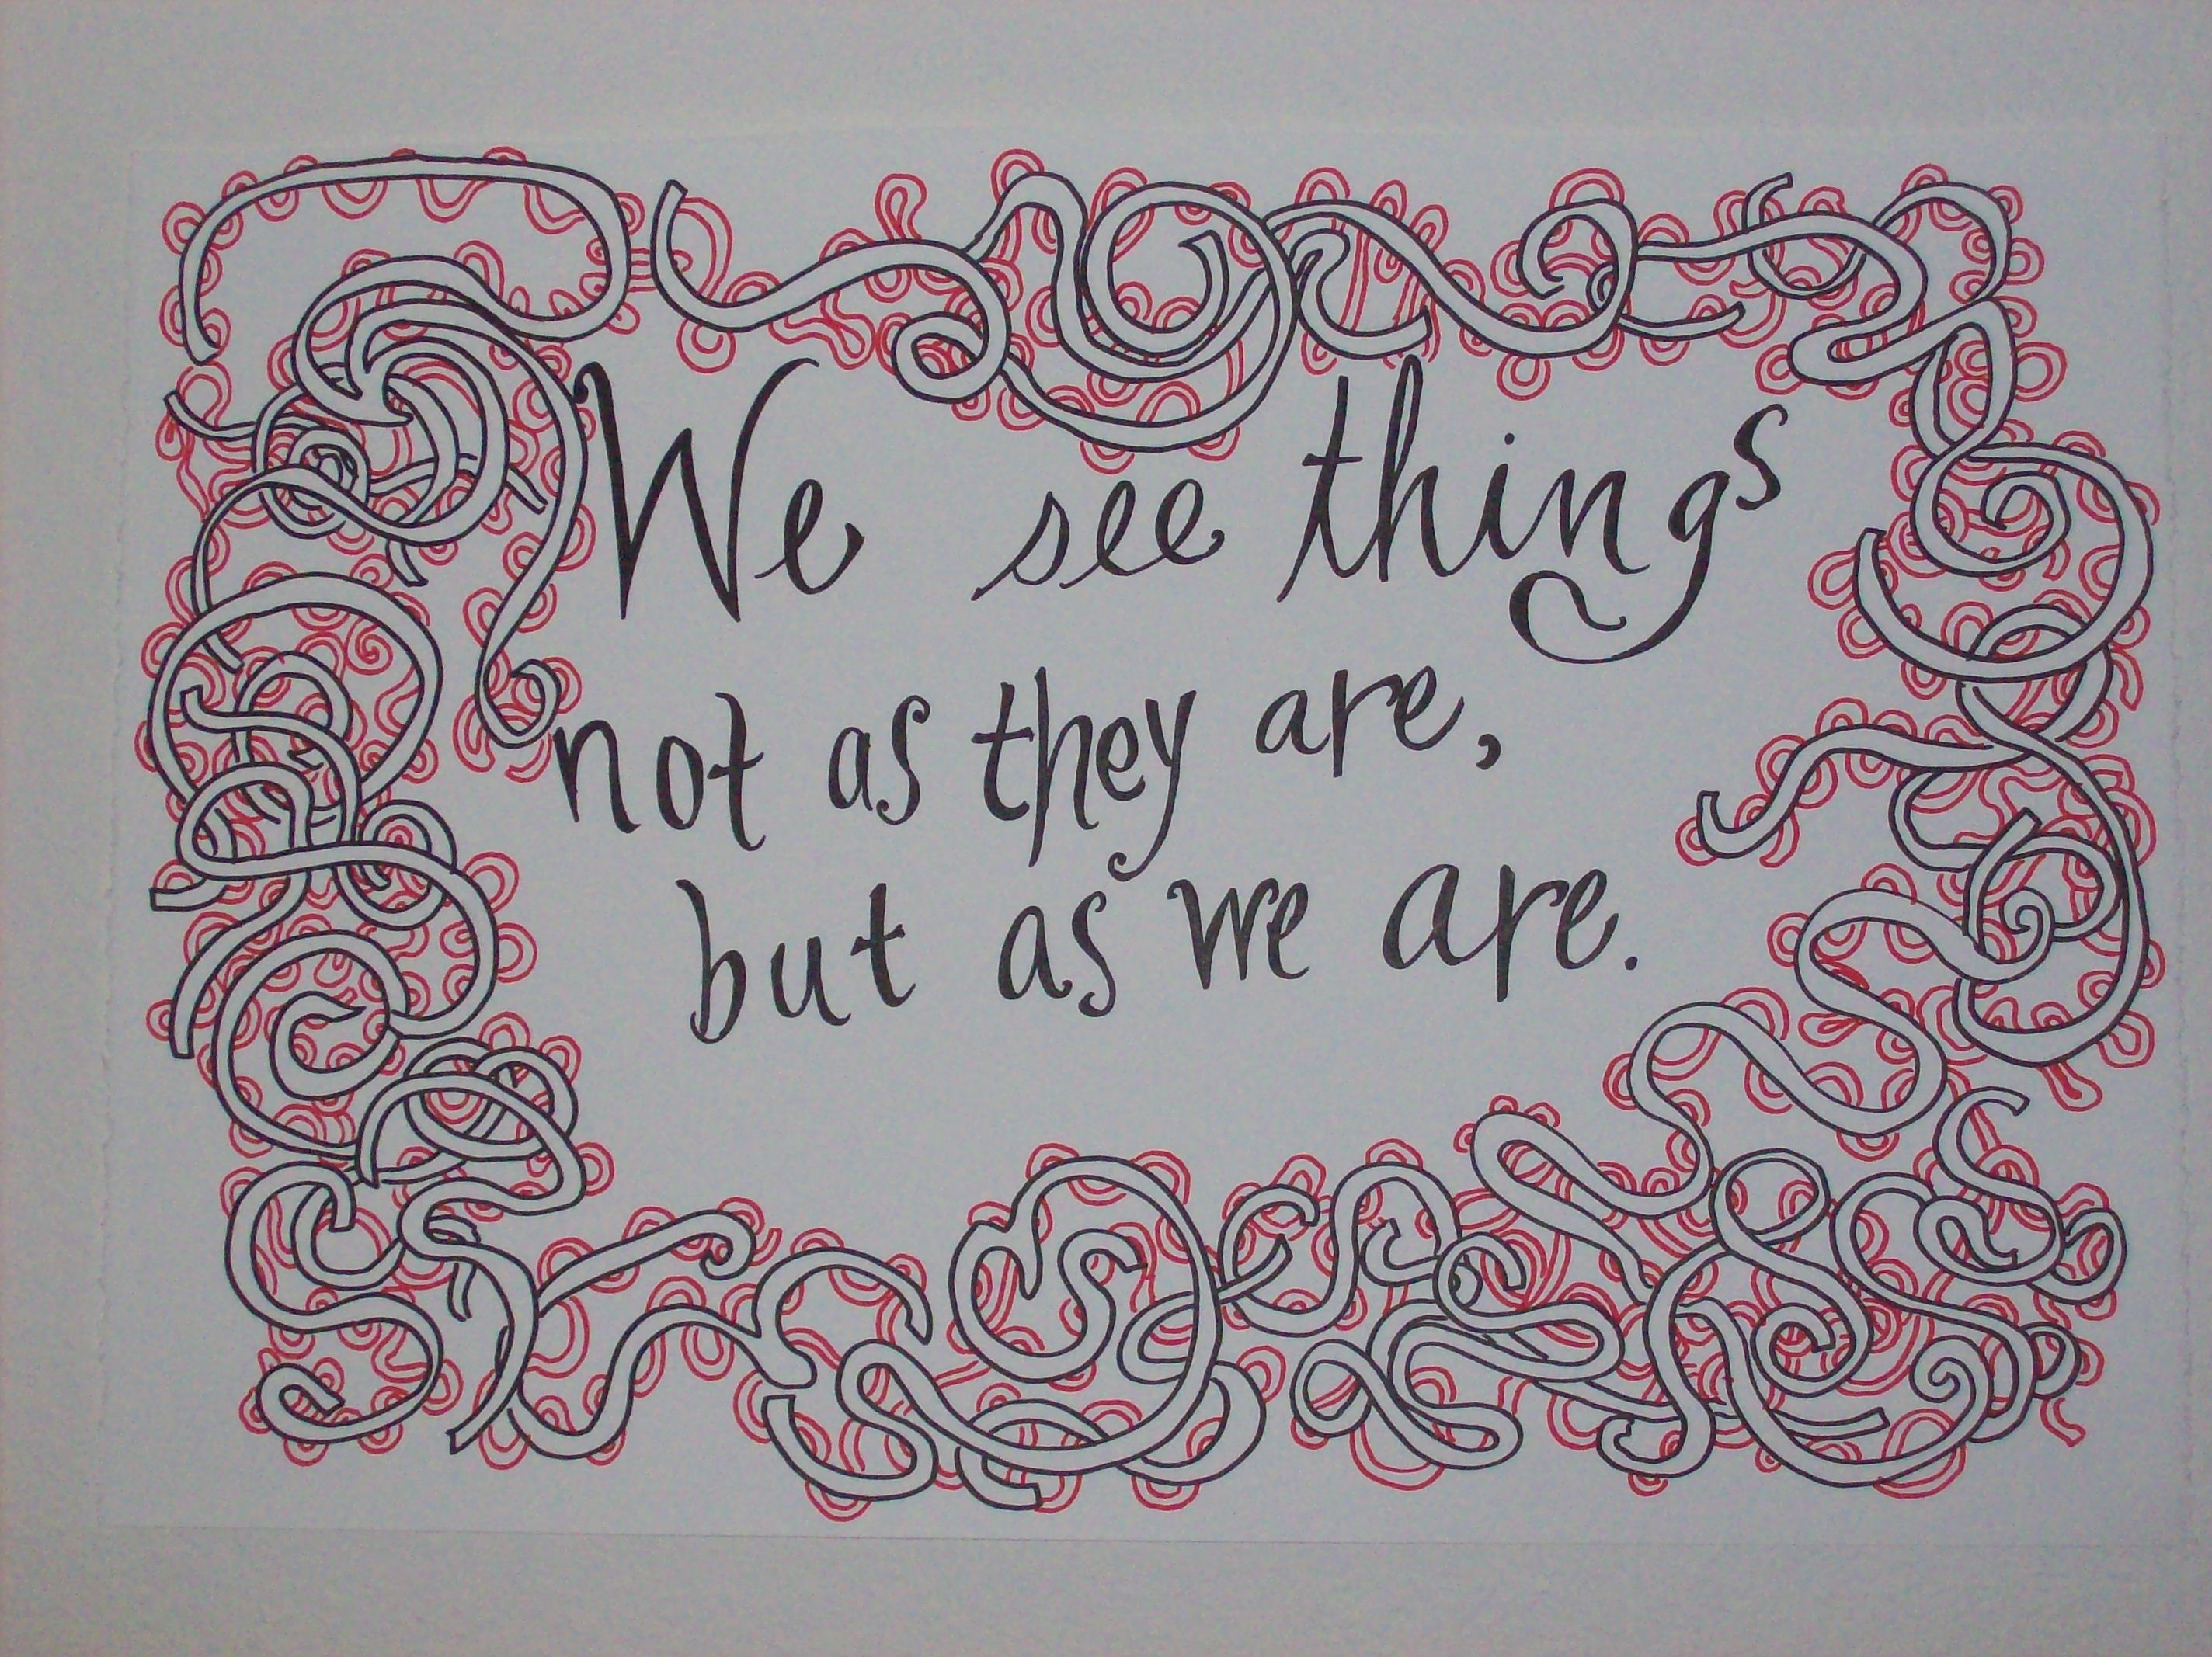 We see things
not as they are,
but as we are.